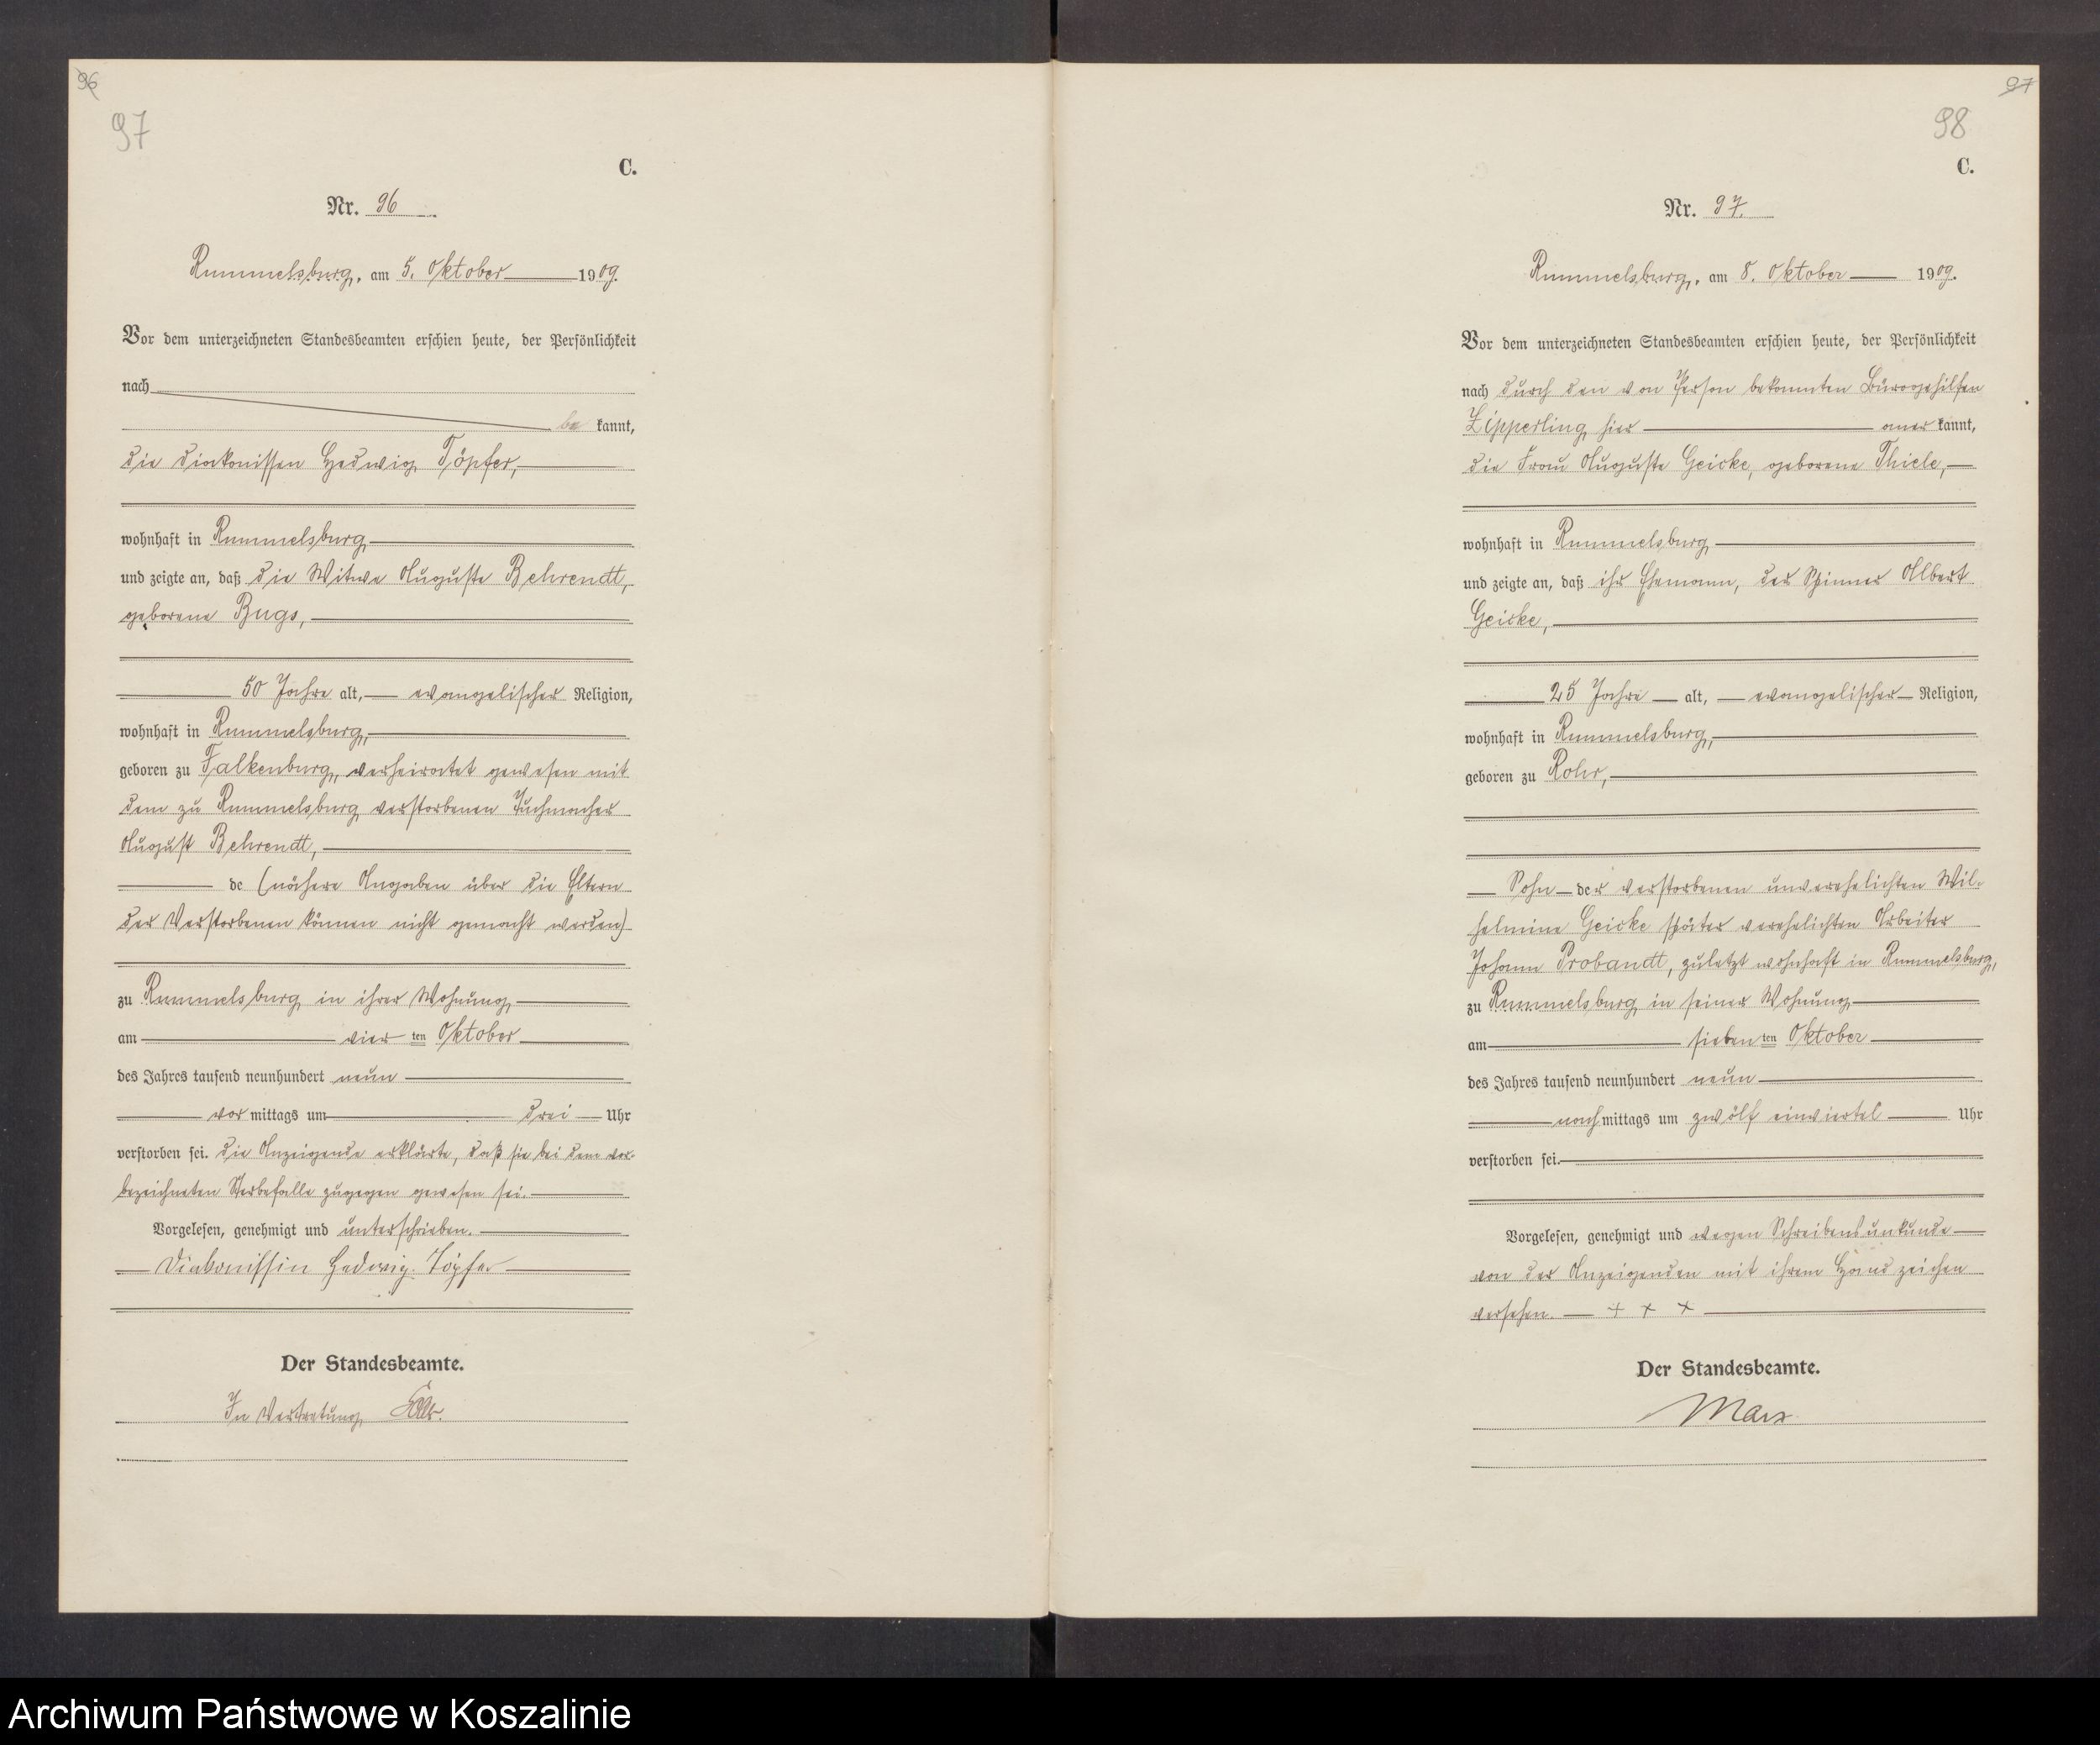 96
97
C.
Nr. 96
Rummelsburg, am 5. Oktober 1909.
Vor dem unterzeichneten Standesbeamten erschien heute, der Persönlichkeit
nach
be kannt,
die Diakonissen Hedwig Töpfer,
wohnhaft in Rummelsburg
und zeigte an, daß die Witwe Auguste Behrendt,
geborene Bugs,
50 Jahre alt, evangelischer Religion,
wohnhaft in Rummelsburg,
geboren zu Falkenburg, verheiratet gewesen mit
dem zu Rummelsburg verstorbenen Tuchmacher
August Behrendt,
de (nähere Angaben über die Eltern
der Verstorbenen können nicht gemacht werden)
zu Rummelsburg in ihrer Wohnung
am vier ten Oktober
des Jahres tausend neunhundert neun
vor mittags um drei Uhr
verstorben sei. Die Anzeigende erklärte, daß sie bei dem vor-
bezeichneten Sterbefalle zugegen gewesen sei.
Vorgelesen, genehmigt und unterschrieben.
Diakonissin Hedwig Töpfer
Der Standesbeamte.
In Vertretung
97
98
C.
Nr. 97.
Rummelsburg, am 8. Oktober 1909.
Vor dem unterzeichneten Standesbeamten erschien heute, der Persönlichkeit
nach durch den von Person bekannten Bürogehilfen
Zipperling hier aner kannt,
die Frau Auguste Geicke, geborene Thiele,
wohnhaft in Rummelsburg
und zeigte an, daß ihr Ehemann, der Spinner Albert
Geicke,
25 Jahre alt, evangelischer Religion,
wohnhaft in Rummelsburg,
geboren zu Rohr,
Sohn der verstorbenen unverehelichten Wil-
helmine Geicke später verehelichten Arbeiter
Johann Probandt, zuletzt wohnhaft in Rummelsburg,
zu Rummelsburg in seiner Wohnung
am sieben ten Oktober
des Jahres tausend neunhundert neun
nach mittags um zwölf einviertel Uhr
verstorben sei.
Vorgelesen, genehmigt und wegen Schreibensunkunde
von der Anzeigenden mit ihrem Handzeichen
versehen. + + +
Der Standesbeamte.
Marx
Archiwum Państwowe w Koszalinie